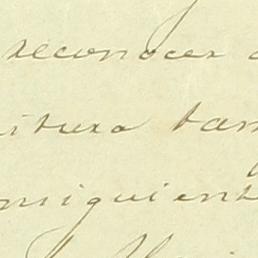 reconocer
itura tan
nsiguient